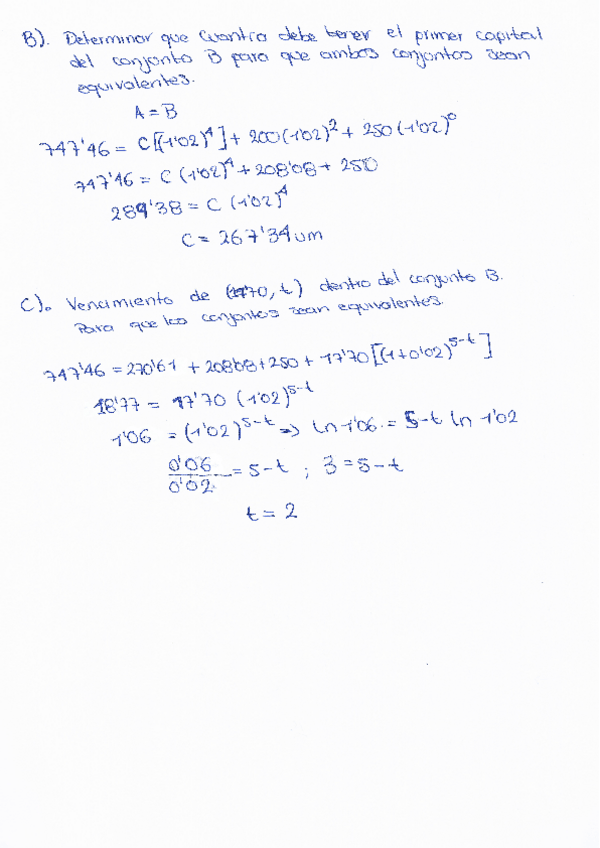 B). Determinar que cuantia debe tener el primer capital
del conjunto B para que ambos conjuntos sean
equivalentes.
A = B
747'46 = C[(1'02)^4] + 200(1'02)^2 + 250(1'02)^0
747'46 = C (1'02)^4 + 208'08 + 250
289'38 = C (1'02)^4
C = 267'34 um
C). Vencimiento de (1770, t) dentro del conjunto B.
Para que los conjuntos sean equivalentes.
747'46 = 270'61 + 208'08 + 250 + 17'70 [(1+0'02)^5-t]
18'77 = 17'70 (1'02)^5-t
1'06 = (1'02)^5-t => ln 1'06 = 5-t ln 1'02
0'06 / 0'02 = 5-t ; 3 = 5-t
t = 2